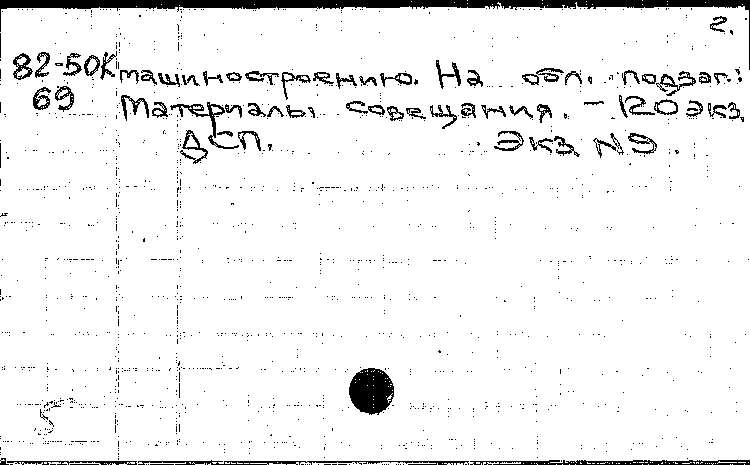 2.
82-50К машиностроению. На обл. подзаг.:
69 Материалы совещания. - 120 экз
ДСП. Экз №9.
5